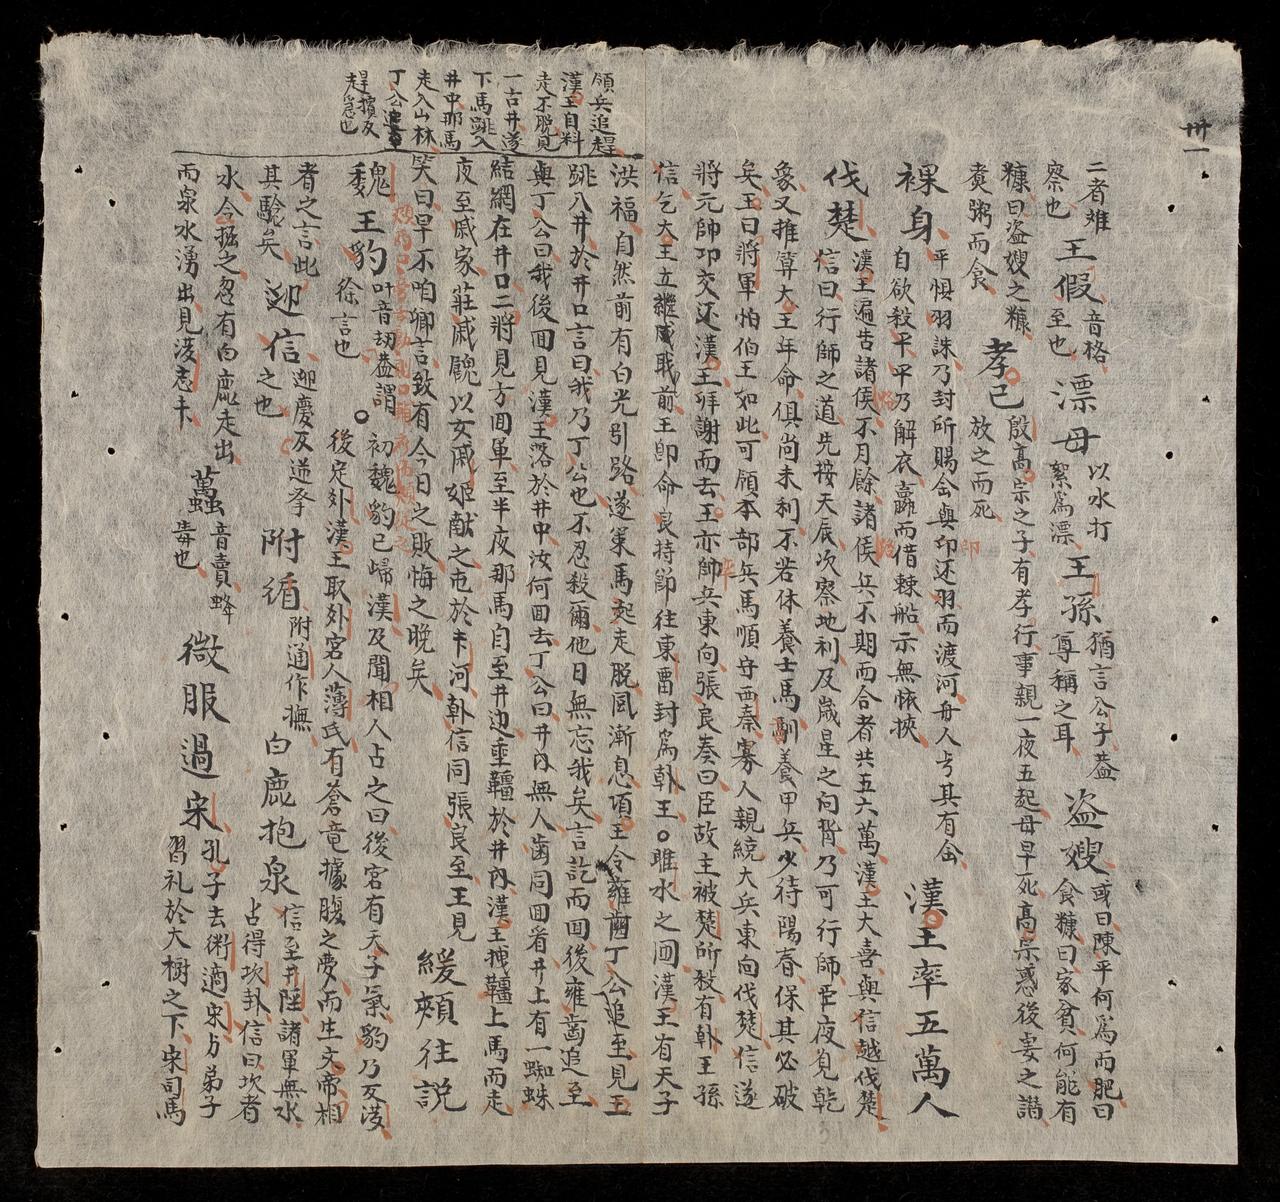 卅一
二者难
察也
王假
音格
至也
漂母
以水打
絮爲漂
王孫
猶言公子蓋
尊稱之耳
盗嫂
或曰陳平何爲而肥曰
食糠曰家貧何能有
糠曰盗嫂之糠
煑粥而食
孝己
殷高宗之子有孝行事親一夜五起母早死高宗惑後妻之譖
放之而死
裸身
平惧羽誅乃封所賜金與印还羽而渡河舟人考其有金
自欲殺平平乃解衣裸而借棹船示無恢挾
漢王率五萬人
伐楚
漢王遍告諸侯不月餘諸侯兵不期而合者共五六萬漢王大喜與信越伐楚
信曰行師之道先按天辰次察地利及歲星之向背乃可行師臣夜見乾
象又推算大王年命俱尚未利不若休養士馬馴養甲兵少待陽春保其必破
矣王曰將軍怕伯王如此可領本部兵馬順守西秦寡人親統大兵東向伐楚信遂
將元帥印交还漢王拜謝而去王亦帥兵東向張良奏曰臣故主被楚所殺有韓王孫
信乞大王立継滅戰前王即命良持節往東晋封爲韓王〇雎水之囬漢王有天子
洪福自然前有白光引路遂策馬起走脱風漸息項王令雍齒丁公追至見王
跳入井於井口言曰我乃丁公也不忍殺爾他日無忘我矣言訖而回後雍齒追至
與丁公曰我後回見漢王落於井中汝何回去丁公曰井內無人齒同回看井上有一蜘蛛
結網在井口二將見方回軍至半夜那馬自至井边垂韁於井內漢王拽韁上馬而走
夜至戚家莊戚䰟以女戚姬献之屯於卞河韓信同張良至王見
笑曰早不咱卿言致有今日之敗悔之晚矣
緩頰往說
魏王豹
叶音刼蓋謂
徐言也
〇
初魏豹已歸漢及聞相人占之曰後宮有天子氣豹乃反漢
後定外漢王取外宮人薄氏有蒼竜據腹之夢而生文帝相
者之言此
其驗矣
迎信
迎慶反逆拏
之也
附循
附通作撫
白鹿抱泉
信至井陘諸軍無水
占得坎卦信曰坎者
水今掘之忽有白鹿走出
而泉水湧出見漢志卞
蠆
音賣蜂
毒也
微服過宋
孔子去衛適宋与弟子
習礼於大樹之下宋司馬
領兵追趕
漢王自料
走不脱見
一古井遂
下馬跳入
井中那馬
走入山林
丁公追至
趕擯反
急也